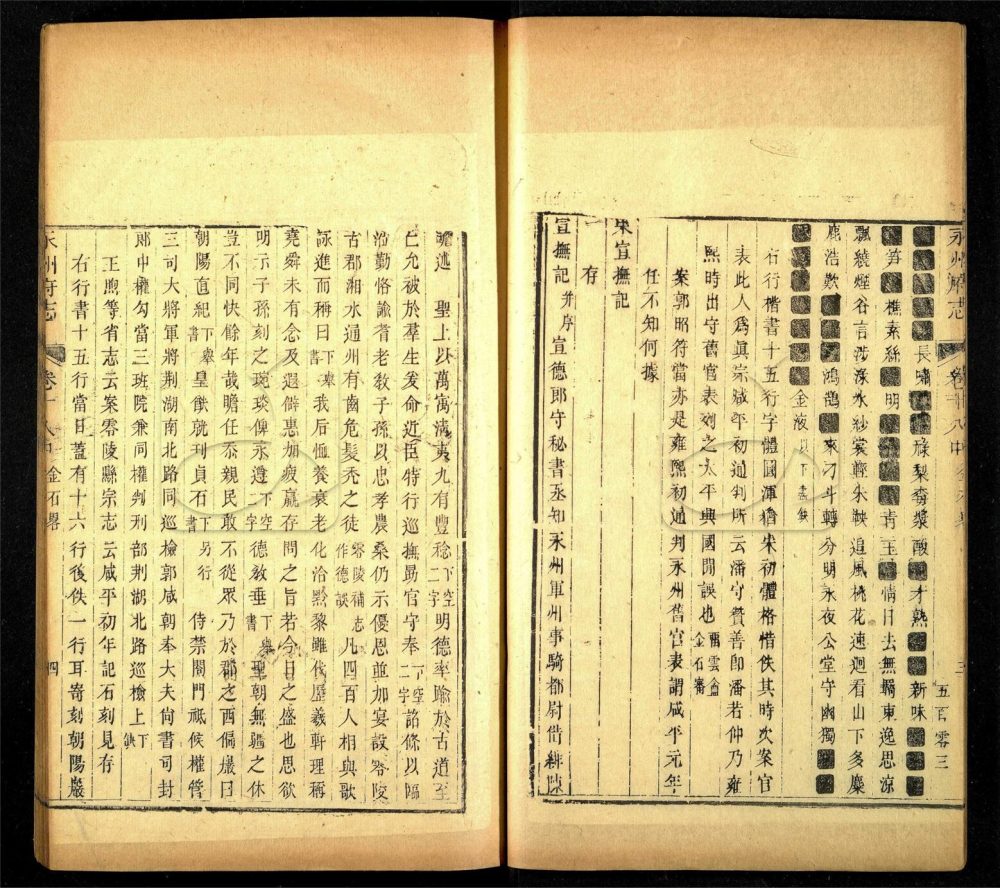 永州府志 卷十八中 金石畧 三 五百零三
■■■長嘯■■祿梨斋漿酸■才熟■■新味■■■
■笋■樵素絲■明■■■■■■青玉■情日去無騶東逸思涼
飄繞煙谷言涉涤水紗裳輕朱鞅追風桃花速迴看山下多麋
鹿浩歎■■鴻鵠■■來刁斗轉分明永夜公堂守幽獨■■
■■■■■■■■金液以下盡缺
右行楷書十五行字體圓渾猶宋初體格惜佚其時次案官
表此人爲眞宗咸平初通判所云潘守贊善卽潘若仲乃雍
熙時出守舊官表列之太平興國閒誤也
案郭昭符當亦是雍熙初通判永州舊官表謂咸平元年
任不知何據
宣撫記
存
宣撫記并序宣德郎守秘書丞知永州軍州事騎都尉借緋陳
瞻述 聖上以萬寓淸夷九有豐稔下空二字明德率踰於古道至
仁允被於羣生爰命近臣特行巡撫勗官守奉下空二字詔條以臨
沿勤恪諭耆老敎子孫以忠孝農桑仍示優恩並加宴設零陵
古郡湘水通州有齒危髮禿之徒零陵補志作德誤凡四百人相與歌
詠進而稱曰下擡書我后恤養衰老化洽黔黎雖伐歴羲軒理稱
堯舜未有念及遐僻惠加疲羸存問之旨若今日之盛也思欲
明示子孫刻之琬琰俾永遵下空二字德敎垂下擡書聖朝無疆之休
豈不同快餘年哉瞻任忝親民敢不從眾乃於郡之西偏巖曰
朝陽直紀下擡書皇猷就刋貞石下書另行侍禁閤門祗候權管
三司大將軍將荆湖南北路同巡檢郭咸朝奉大夫尙書司封
郎中權勾當三班院兼同權判刑部荆湖北路巡檢上下缺
王煦等省志云案零陵縣宗志云咸平初年記石刻見存
右行書十五行當日蓋有十六行後佚一行耳寄刻朝陽巖
永州府志 卷十八中 金石畧 四